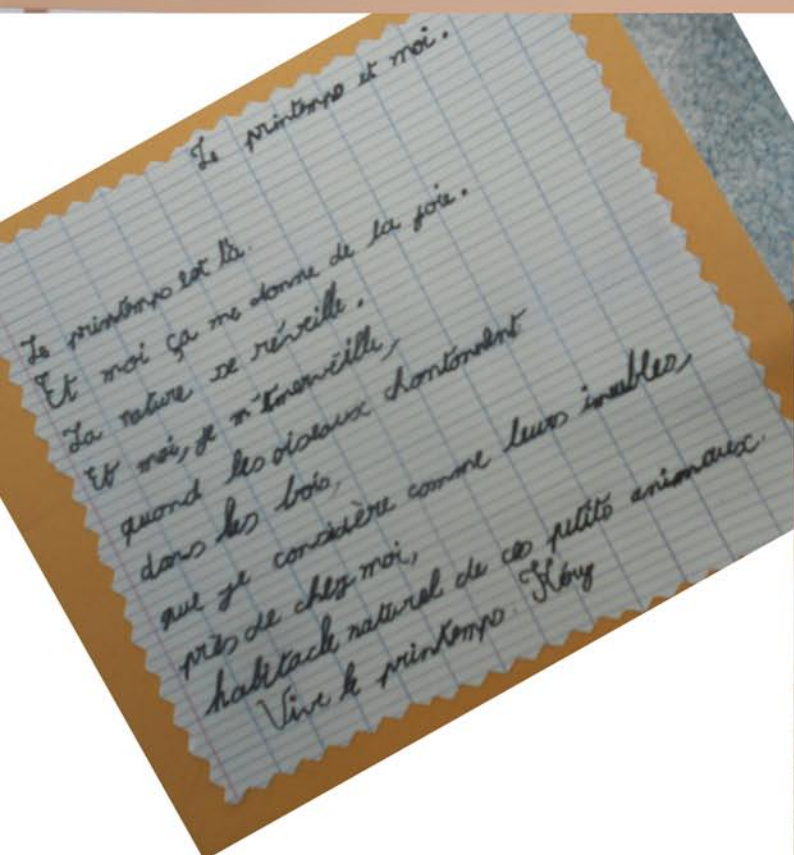 Le printemps et moi.
Le printemps est là.
Et moi ça me donne de la joie.
La nature se réveille.
Et moi, je m'émerveille,
quand les oiseaux chantonnent
dans les bois,
que je considère comme leurs imeubles,
près de chez moi,
habitacle naturel de ces petits animaux.
Vive le printemps.